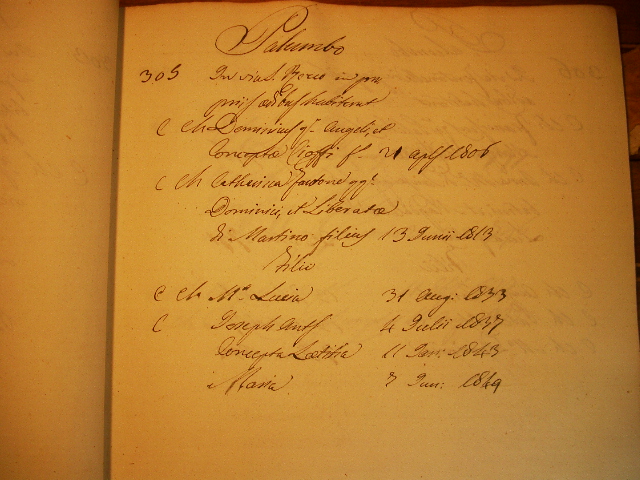 Palumbo
305 In via S. Rocco in pro
priis ædibus habitant
C Ch Dominicus qm Angeli, et
Concepta Cioffi f. 21 aplis 1806
C Ch Catharina qqm
Dominici, et Liberatæ
di Martino filius 13 Junii 1813
Filii
C Ch Ma Lucia 31 Aug: 1833
C Joseph Ant. 4 Julii 1837
Concepta Lætitia 11 Jan: 1843
Maria 7 Jun: 1849